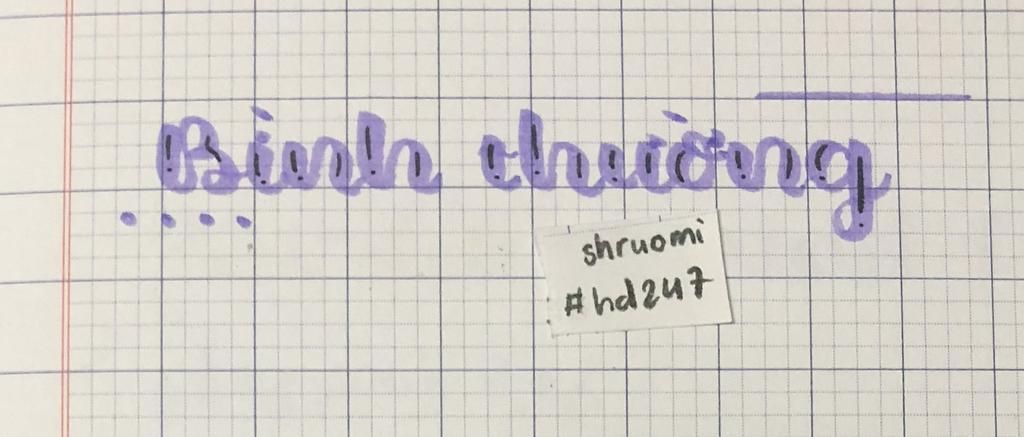 Bình thường
shruomi
#hd247